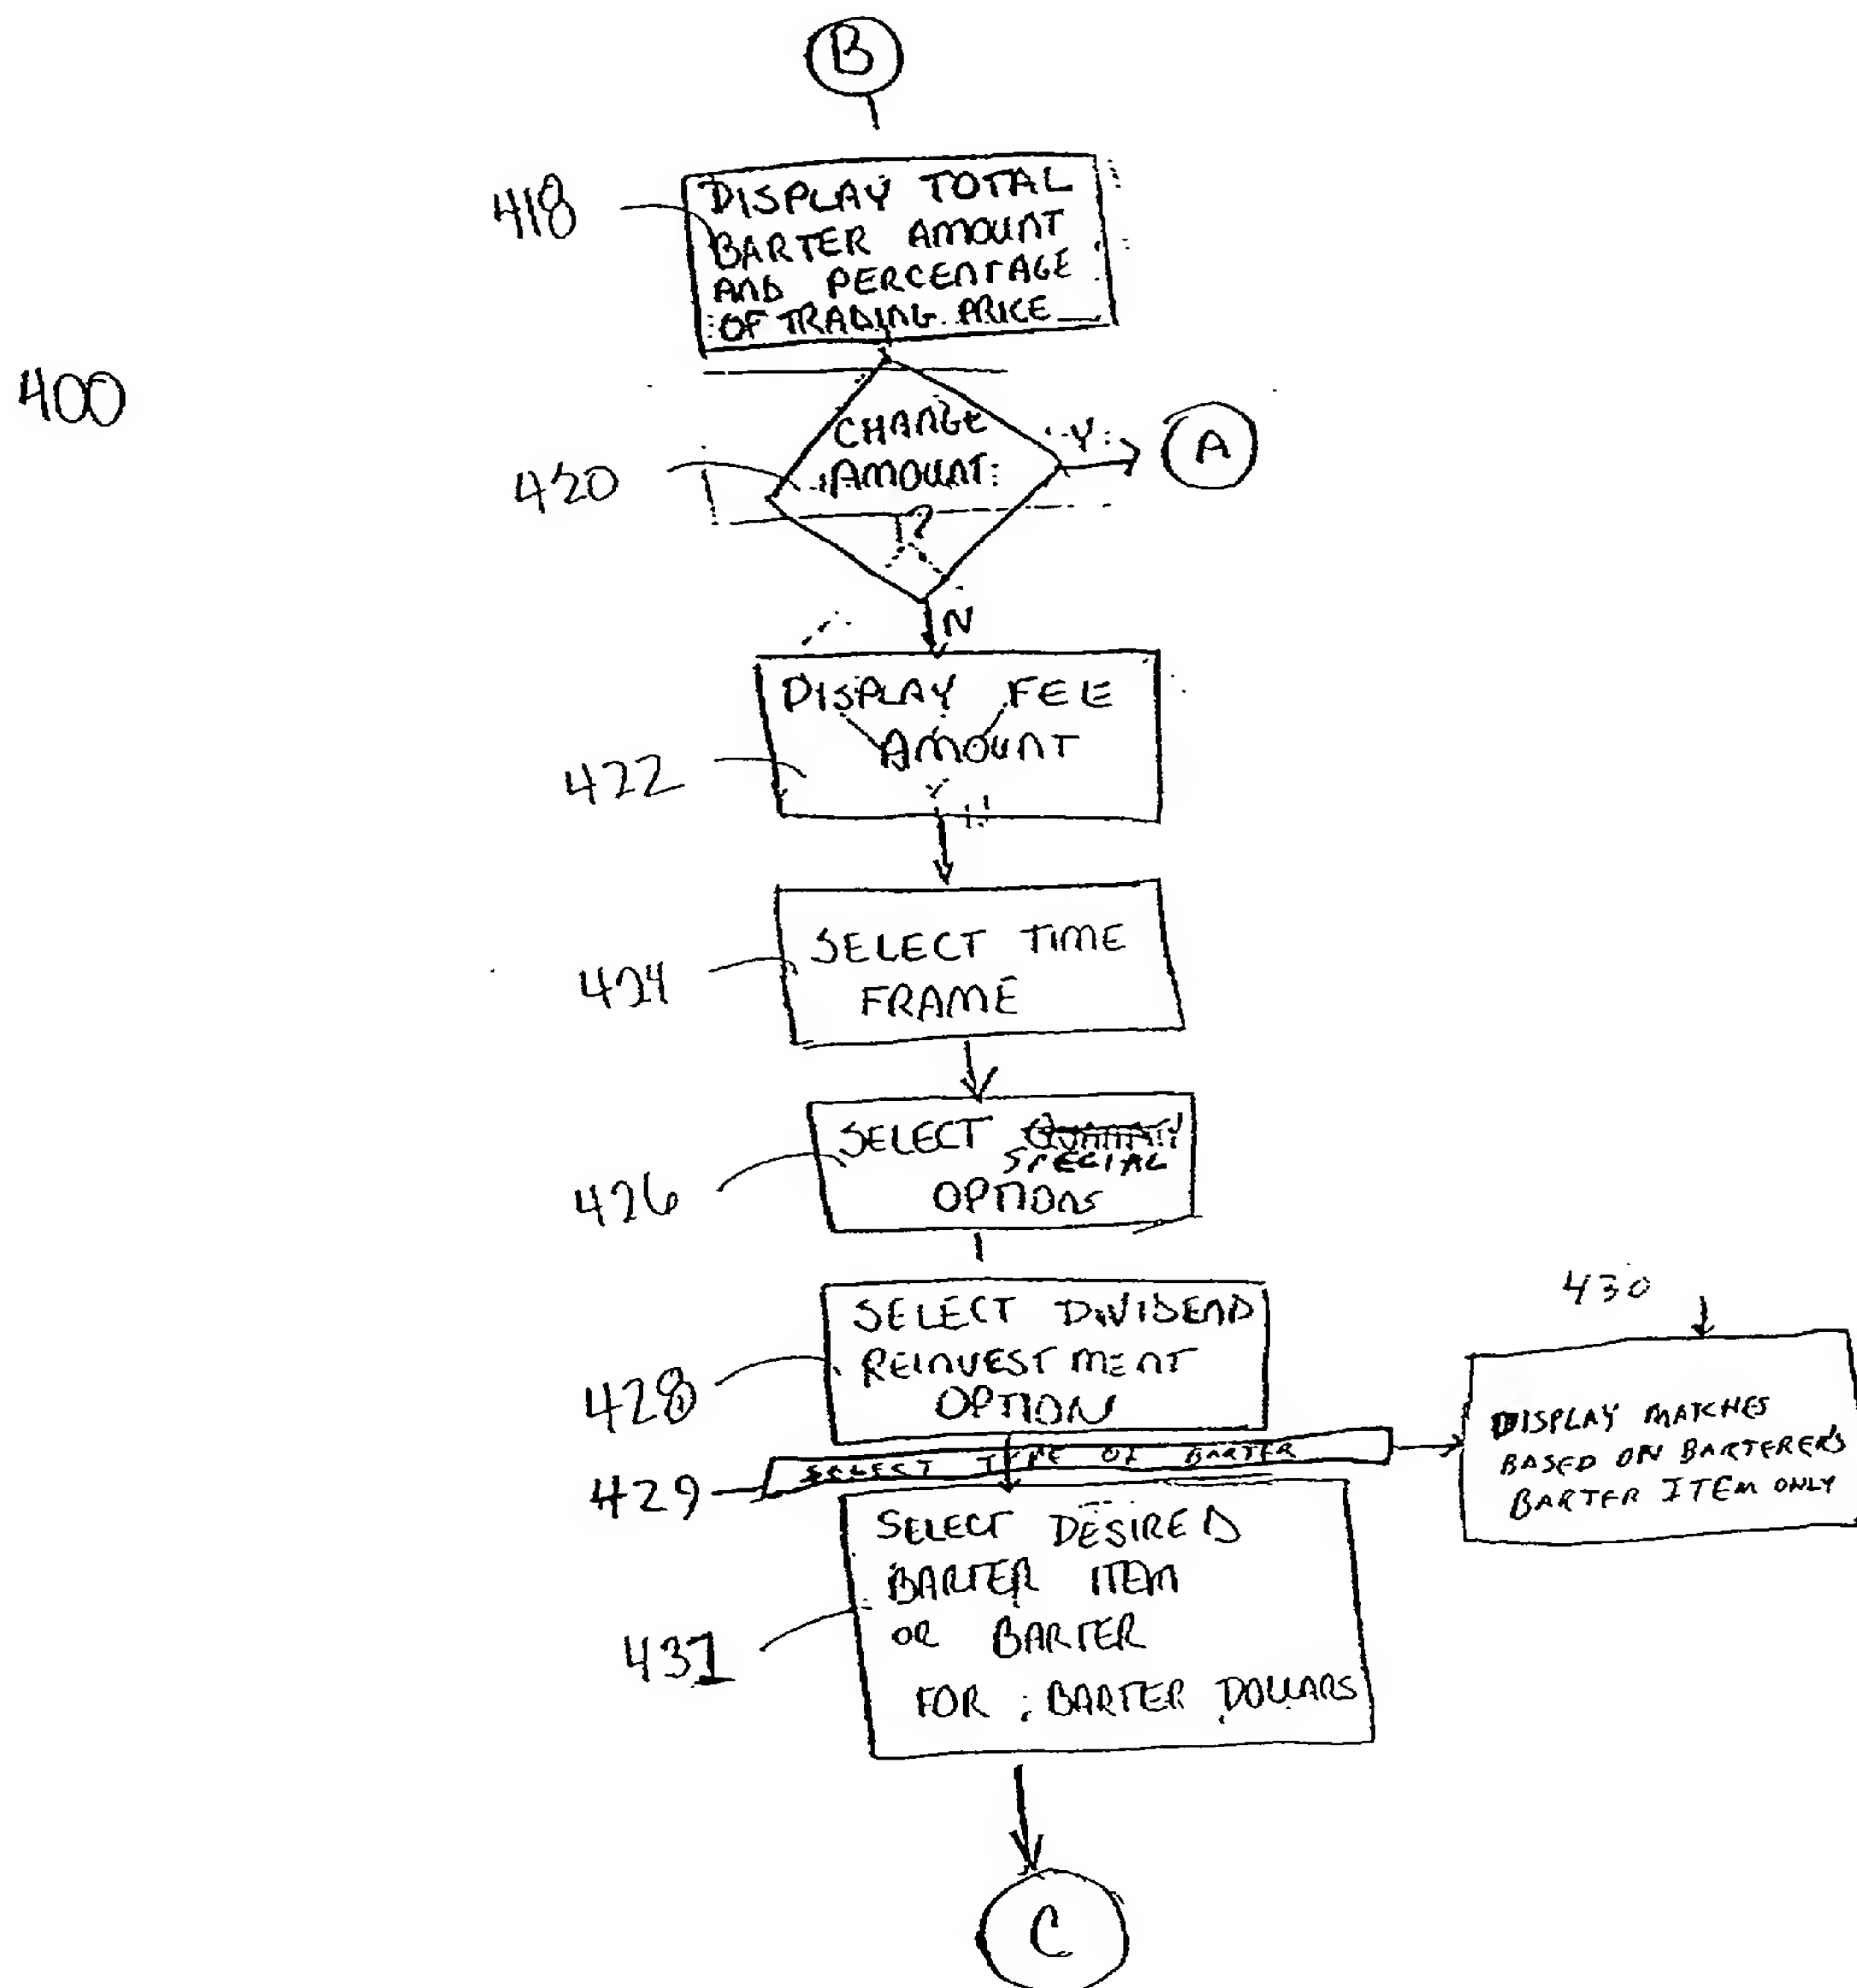 B
418
DISPLAY TOTAL
BARTER AMOUNT
AND PERCENTAGE
OF TRADING PRICE
400
420
CHANGE
AMOUNT
?
Y
A
N
422
DISPLAY FEE
AMOUNT
424
SELECT TIME
FRAME
426
SELECT
SPECIAL
OPTIONS
428
SELECT DIVIDEND
REINVESTMENT
OPTION
429
SELECT TYPE OF BARTER
430
DISPLAY MATCHES
BASED ON BARTERER'S
BARTER ITEM ONLY
431
SELECT DESIRED
BARTER ITEM
OR BARTER
FOR BARTER DOLLARS
C